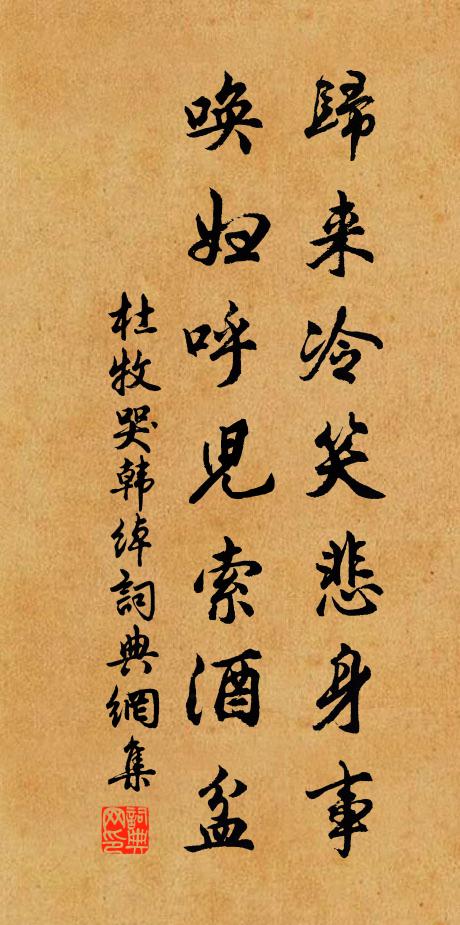 歸来冷笑悲身事
唤妇呼児索酒盆
杜牧哭韩绰詞典網集
詞典網印